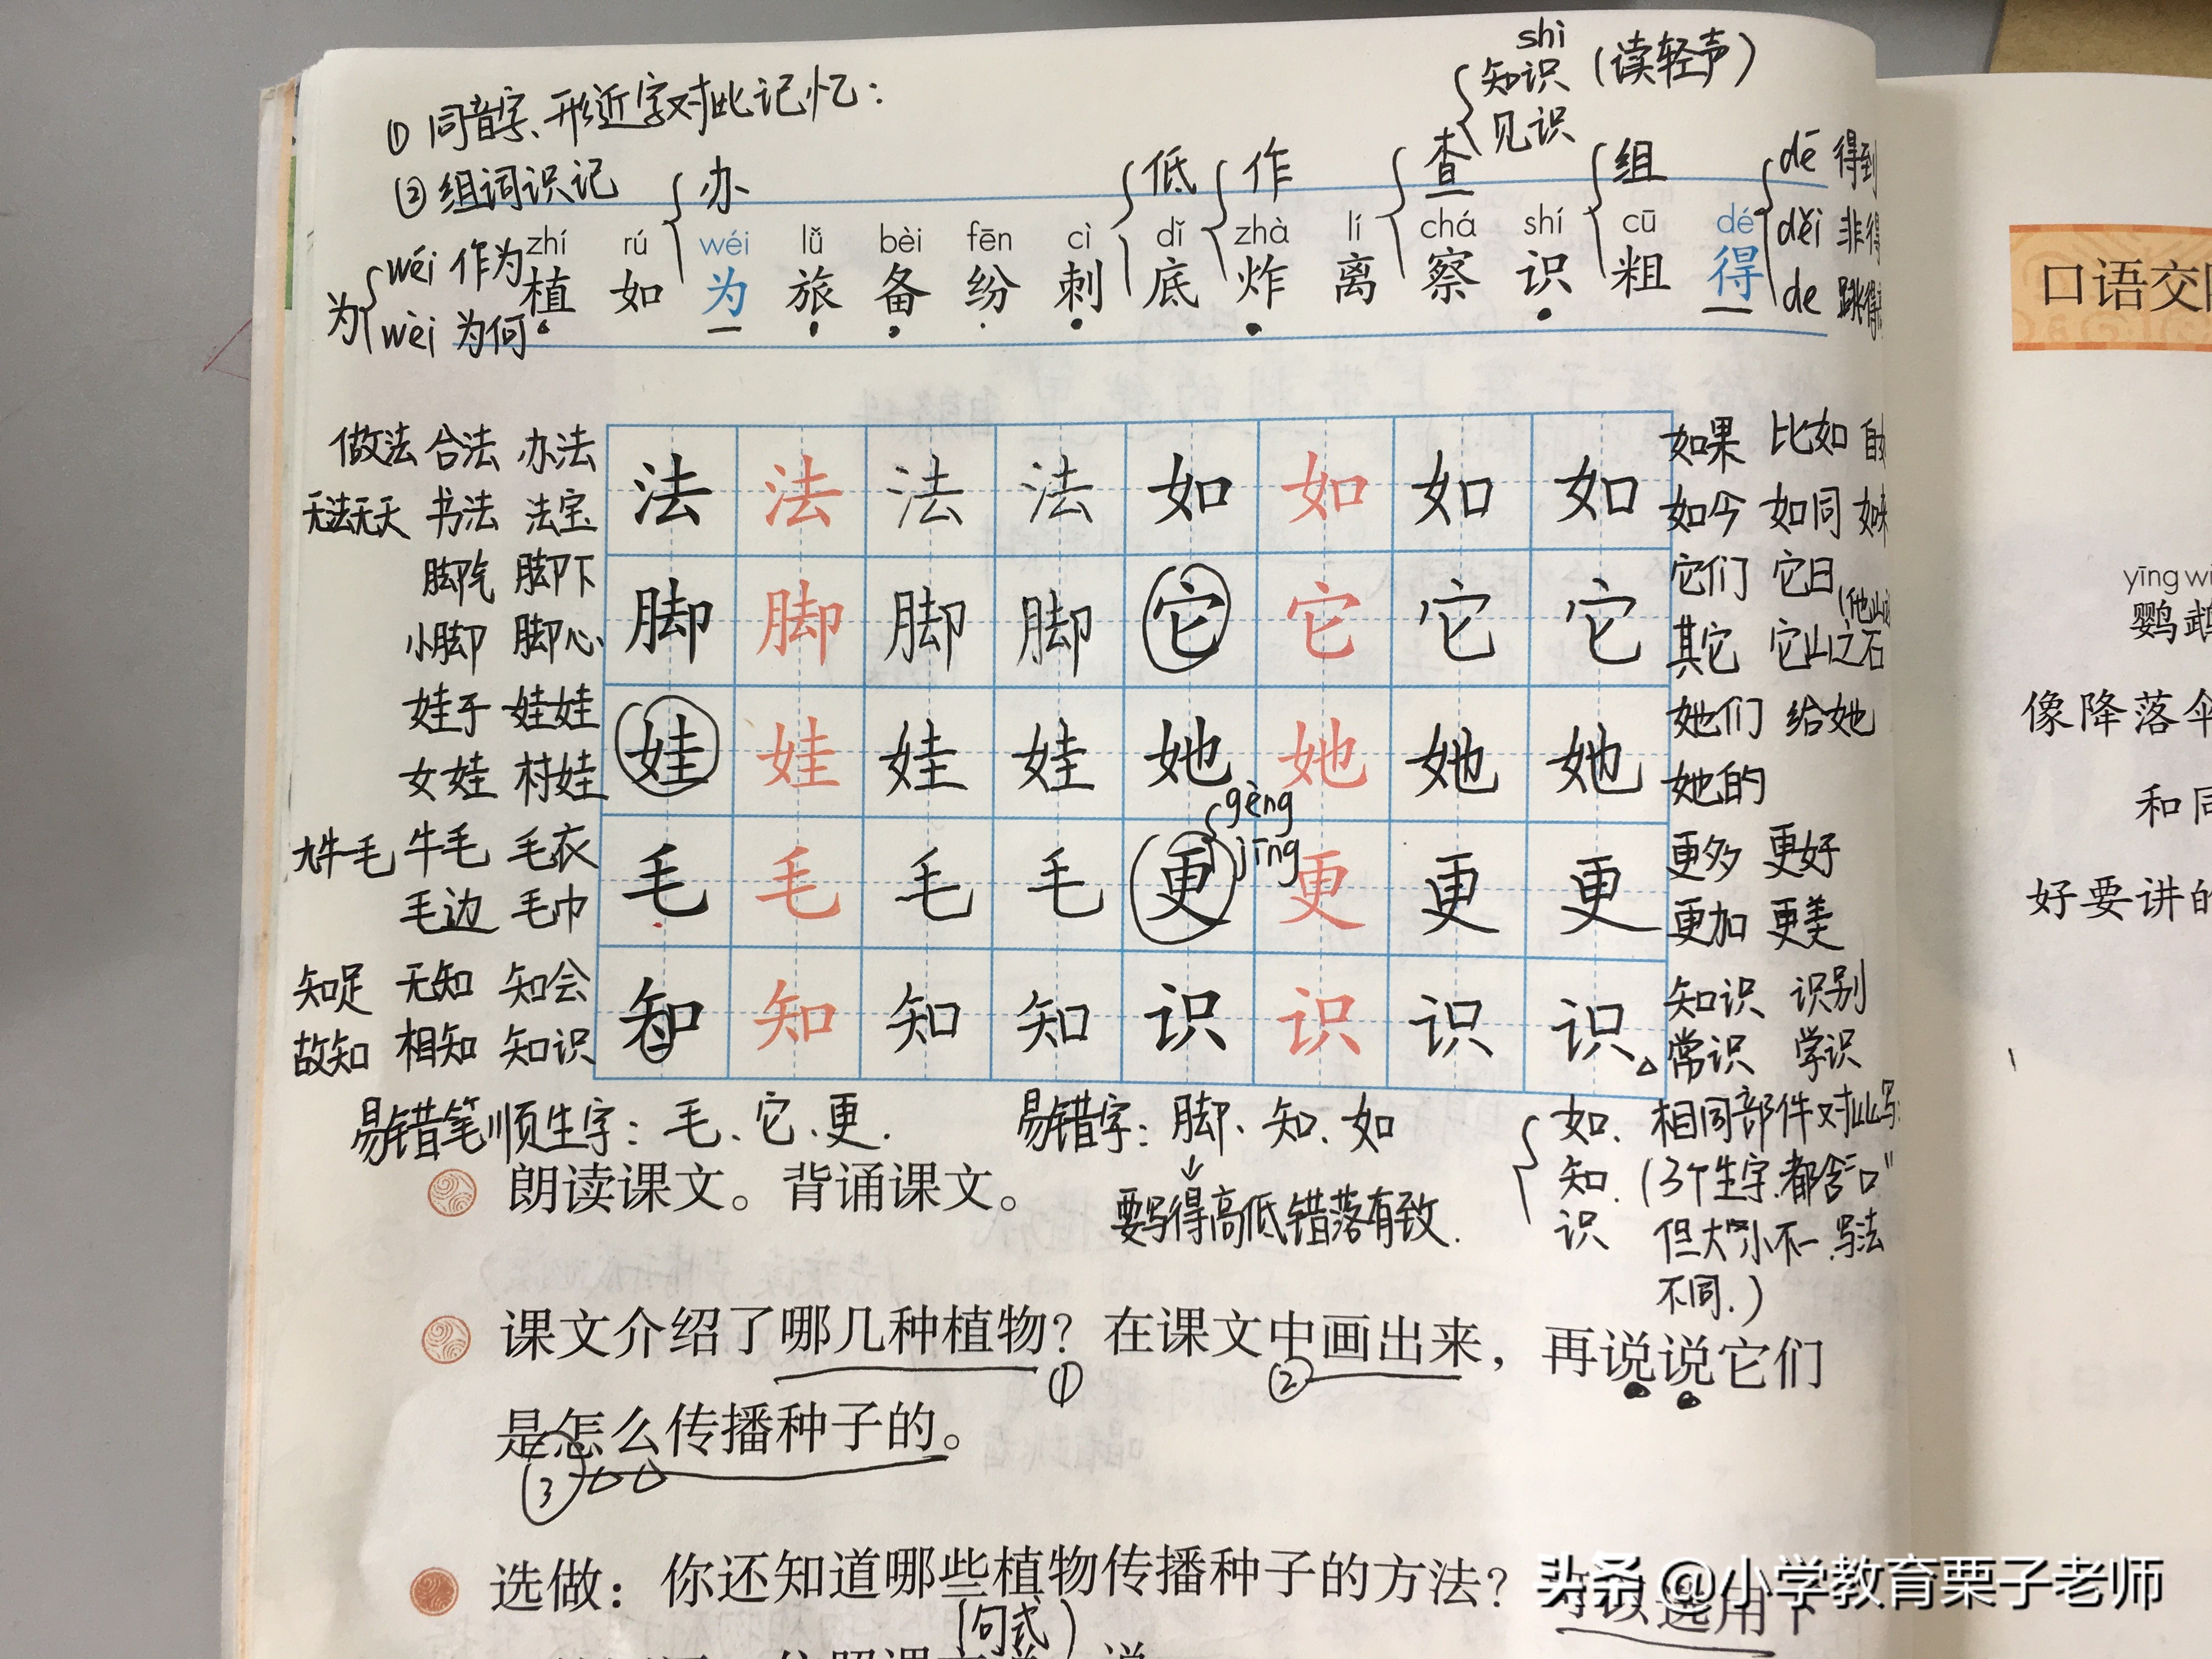 shi
知识（读轻声）
见识
①同音字、形近字对比记忆：
②组词识记
办 低 作 查 组 dé 得到
zhí rú wéi lǚ bèi fēn cì dǐ zhà lí chá shí cū dé
děi 非得
植 如 为 旅 备 纷 刺 底 炸 离 察 识 粗 得
de 跳得
为 wéi 作为
wèi 为何
口语交
做法 合法 办法
无法无天 书法 法宝
法 法 法 法 如 如 如 如
如果 比如
如今 如同
脚气 脚下
小脚 脚心
脚 脚 脚 脚 它 它 它 它
它们 它日
其它 它山之石
娃子 娃娃
女娃 村娃
娃 娃 娃 娃 她 她 她 她
她们 给她
她的
九牛毛 牛毛 毛衣
毛边 毛巾
gèng
jīng
毛 毛 毛 毛 更 更 更 更
更多 更好
更加 更美
知足 无知 知会
故知 相知 知识
知 知 知 知 识 识 识 识
知识 识别
常识 学识
易错笔顺生字：毛、它、更.
易错字：脚、知、如
↓
要写得高低错落有致.
如、相同部件对比写
知.（3个生字.都含“口”
识 但大小不一.写法
不同.）
朗读课文。背诵课文。
课文介绍了哪几种植物？在课文中画出来，再说说它们
① ②
是怎么传播种子的。
③
选做：你还知道哪些植物传播种子的方法？可以选用下
（句式）
yīng wǔ
鹦鹉
像降落伞
和同
好要讲的
头条 @小学教育栗子老师